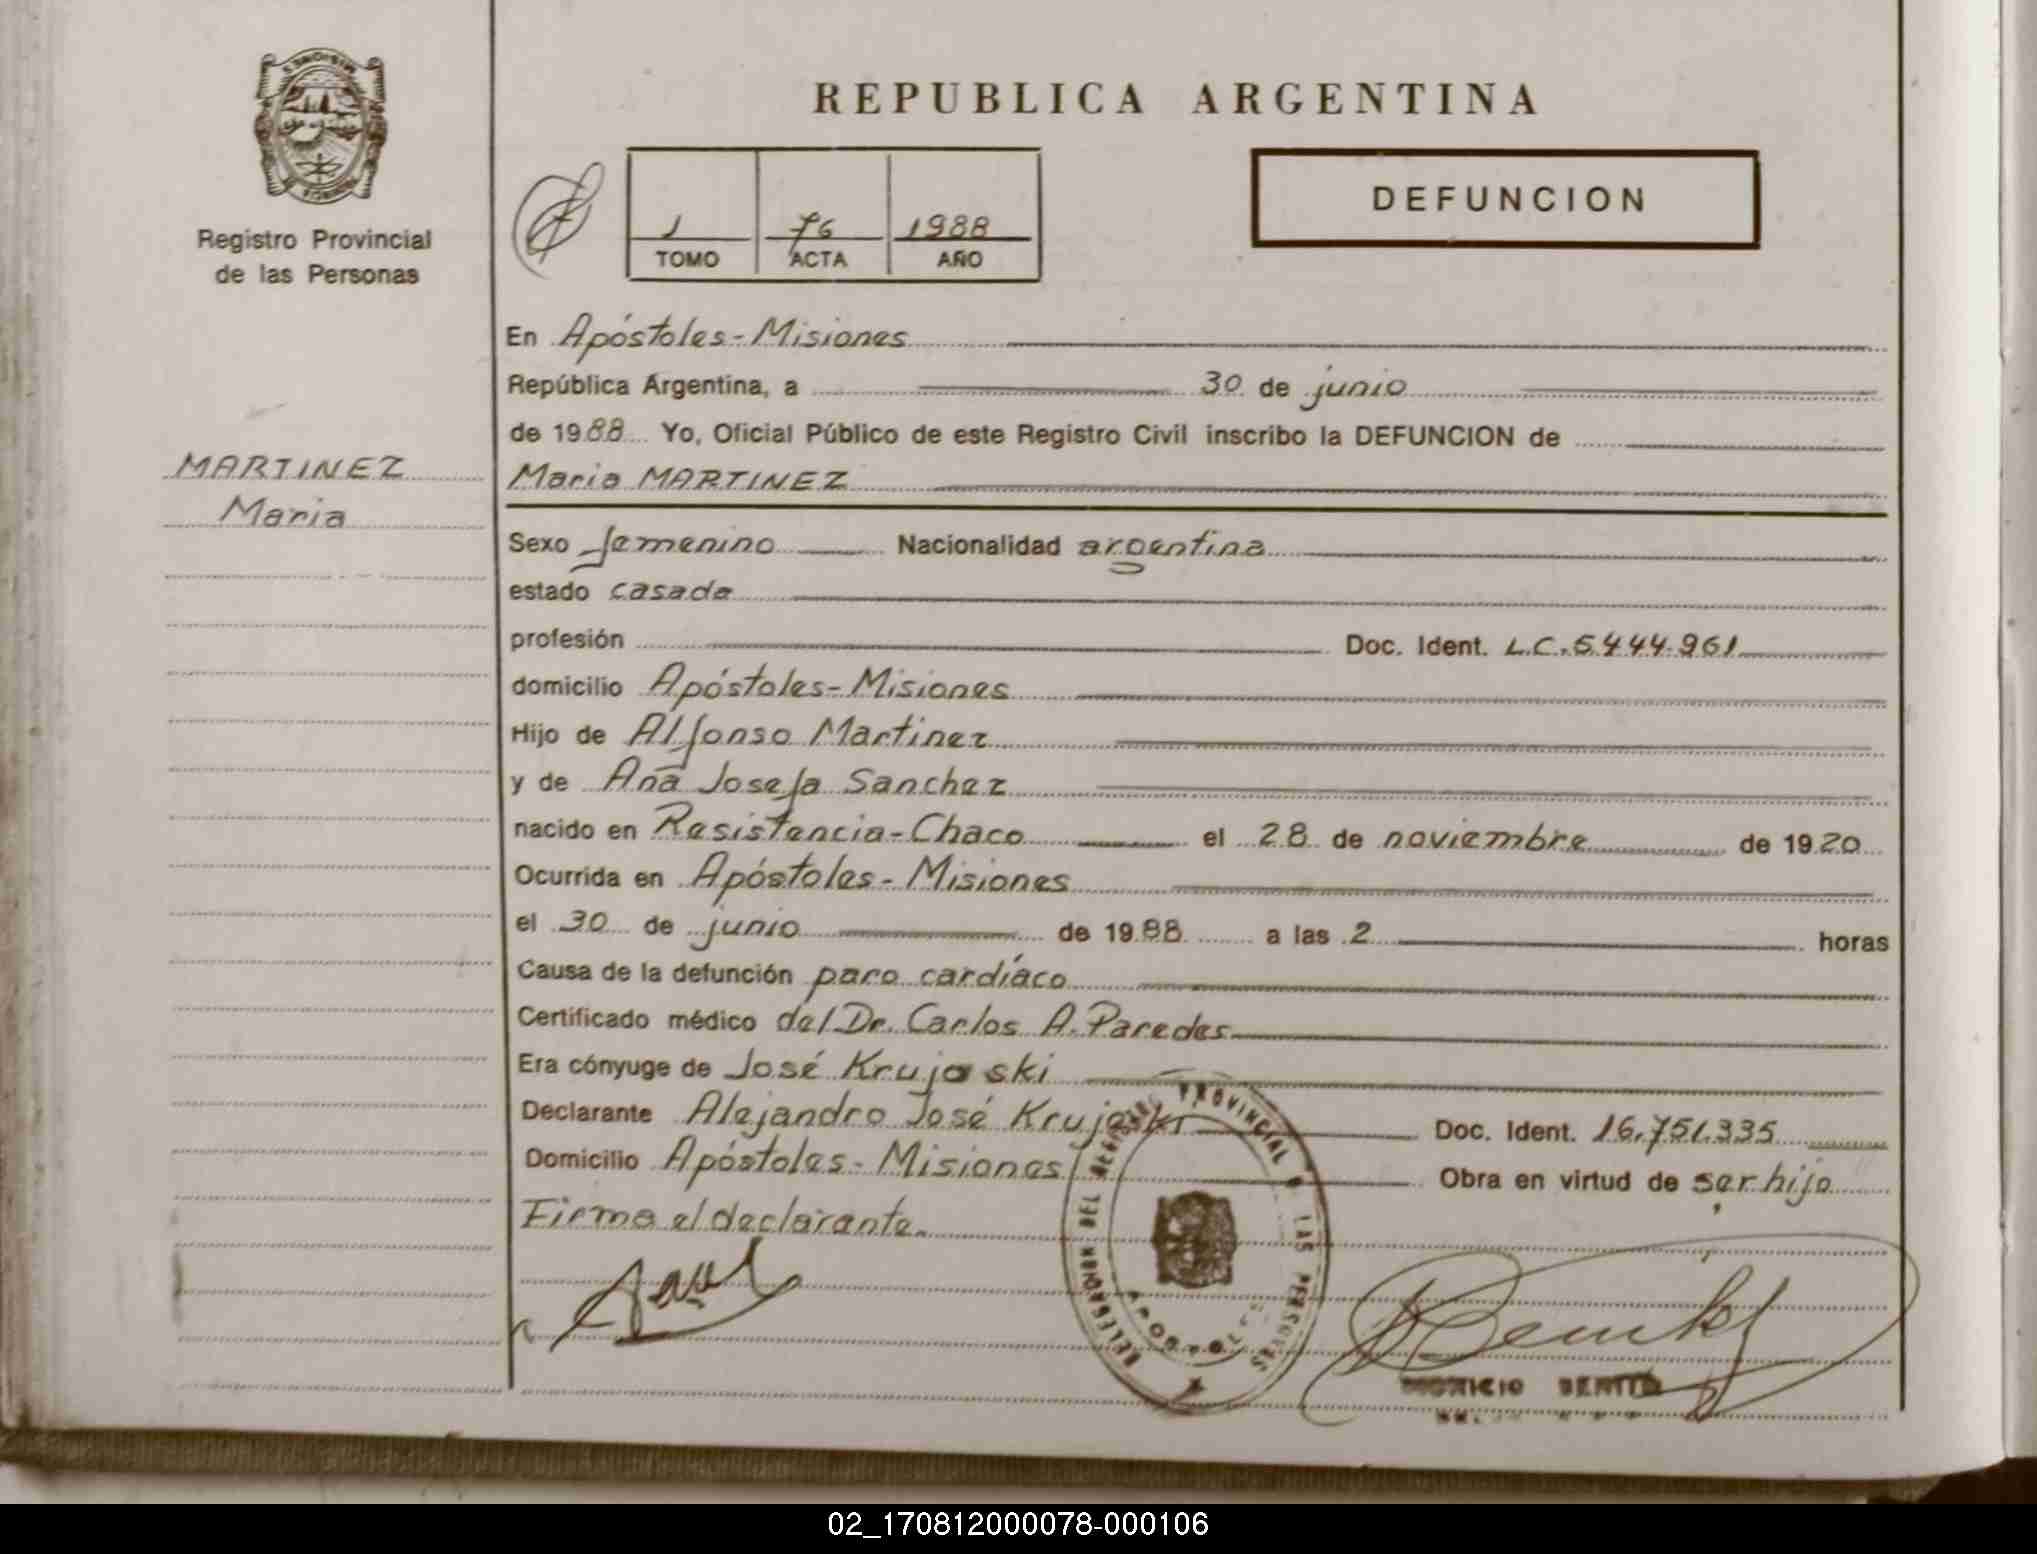 REPUBLICA ARGENTINA
DEFUNCION
MISIONES
PROVINCIA DE
Registro Provincial
de las Personas
1 76 1988
TOMO ACTA AÑO
En Apóstoles-Misiones
República Argentina, a 30 de junio
de 1988 Yo, Oficial Público de este Registro Civil inscribo la DEFUNCION de
MARTINEZ
Maria
Maria MARTINEZ
Sexo femenino Nacionalidad argentina
estado casada
profesión Doc. Ident. L.C.5.444.961
domicilio Apóstoles-Misiones
Hijo de Alfonso Martinez
y de Ana Josefa Sanchez
nacido en Resistencia-Chaco el 28 de noviembre de 1920
Ocurrida en Apóstoles-Misiones
el 30 de junio de 1988 a las 2 horas
Causa de la defunción paro cardíaco
Certificado médico del Dr. Carlos A. Paredes
Era cónyuge de José Krujoski
Declarante Alejandro José Krujoski Doc. Ident. 16.751.335
Domicilio Apóstoles-Misiones Obra en virtud de ser hijo
Firma el declarante.
DELEGACION DEL REGISTRO PROVINCIAL DE LAS PERSONAS
APOSTOLES
02_170812000078-000106